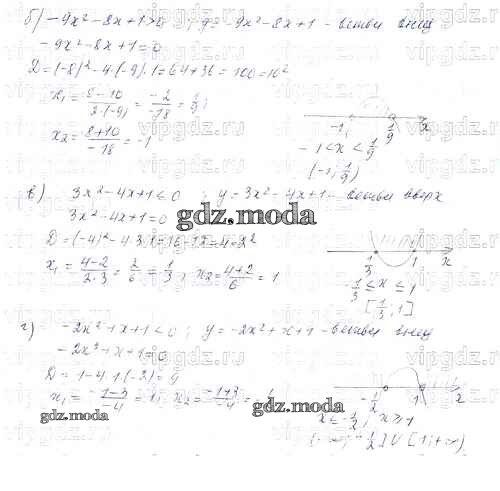 б) -9x² - 8x + 1 > 0 ; y = -9x² - 8x + 1 - ветви вниз
-9x² - 8x + 1 = 0
D = (-8)² - 4·(-9)·1 = 64 + 36 = 100 = 10²
x₁ = (8-10)/(2·(-9)) = -2/-18 = 1/9 ;
x₂ = (8+10)/-18 = -1
-1 1/9 x
-1 < x < 1/9
(-1; 1/9)
в) 3x² - 4x + 1 ≤ 0 ; y = 3x² - 4x + 1 - ветви вверх
3x² - 4x + 1 = 0
gdz.moda
D = (-4)² - 4·3·1 = 16 - 12 = 4 = 2²
x₁ = (4-2)/(2·3) = 2/6 = 1/3 ; x₂ = (4+2)/6 = 1
1/3 1 x
1/3 ≤ x ≤ 1
[1/3; 1]
г) -2x² + x + 1 ≤ 0 ; y = -2x² + x + 1 - ветви вниз
-2x² + x + 1 = 0
D = 1 - 4·1·(-2) = 9
x₁ = (-1-3)/-4 = 1 ; x₂ = (-1+3)/-4 = -1/2
-1/2 1 x
gdz.moda
gdz.moda
x ≤ -1/2 ; x ≥ 1
(-∞; -1/2] U [1; +∞)
vipgdz.ru